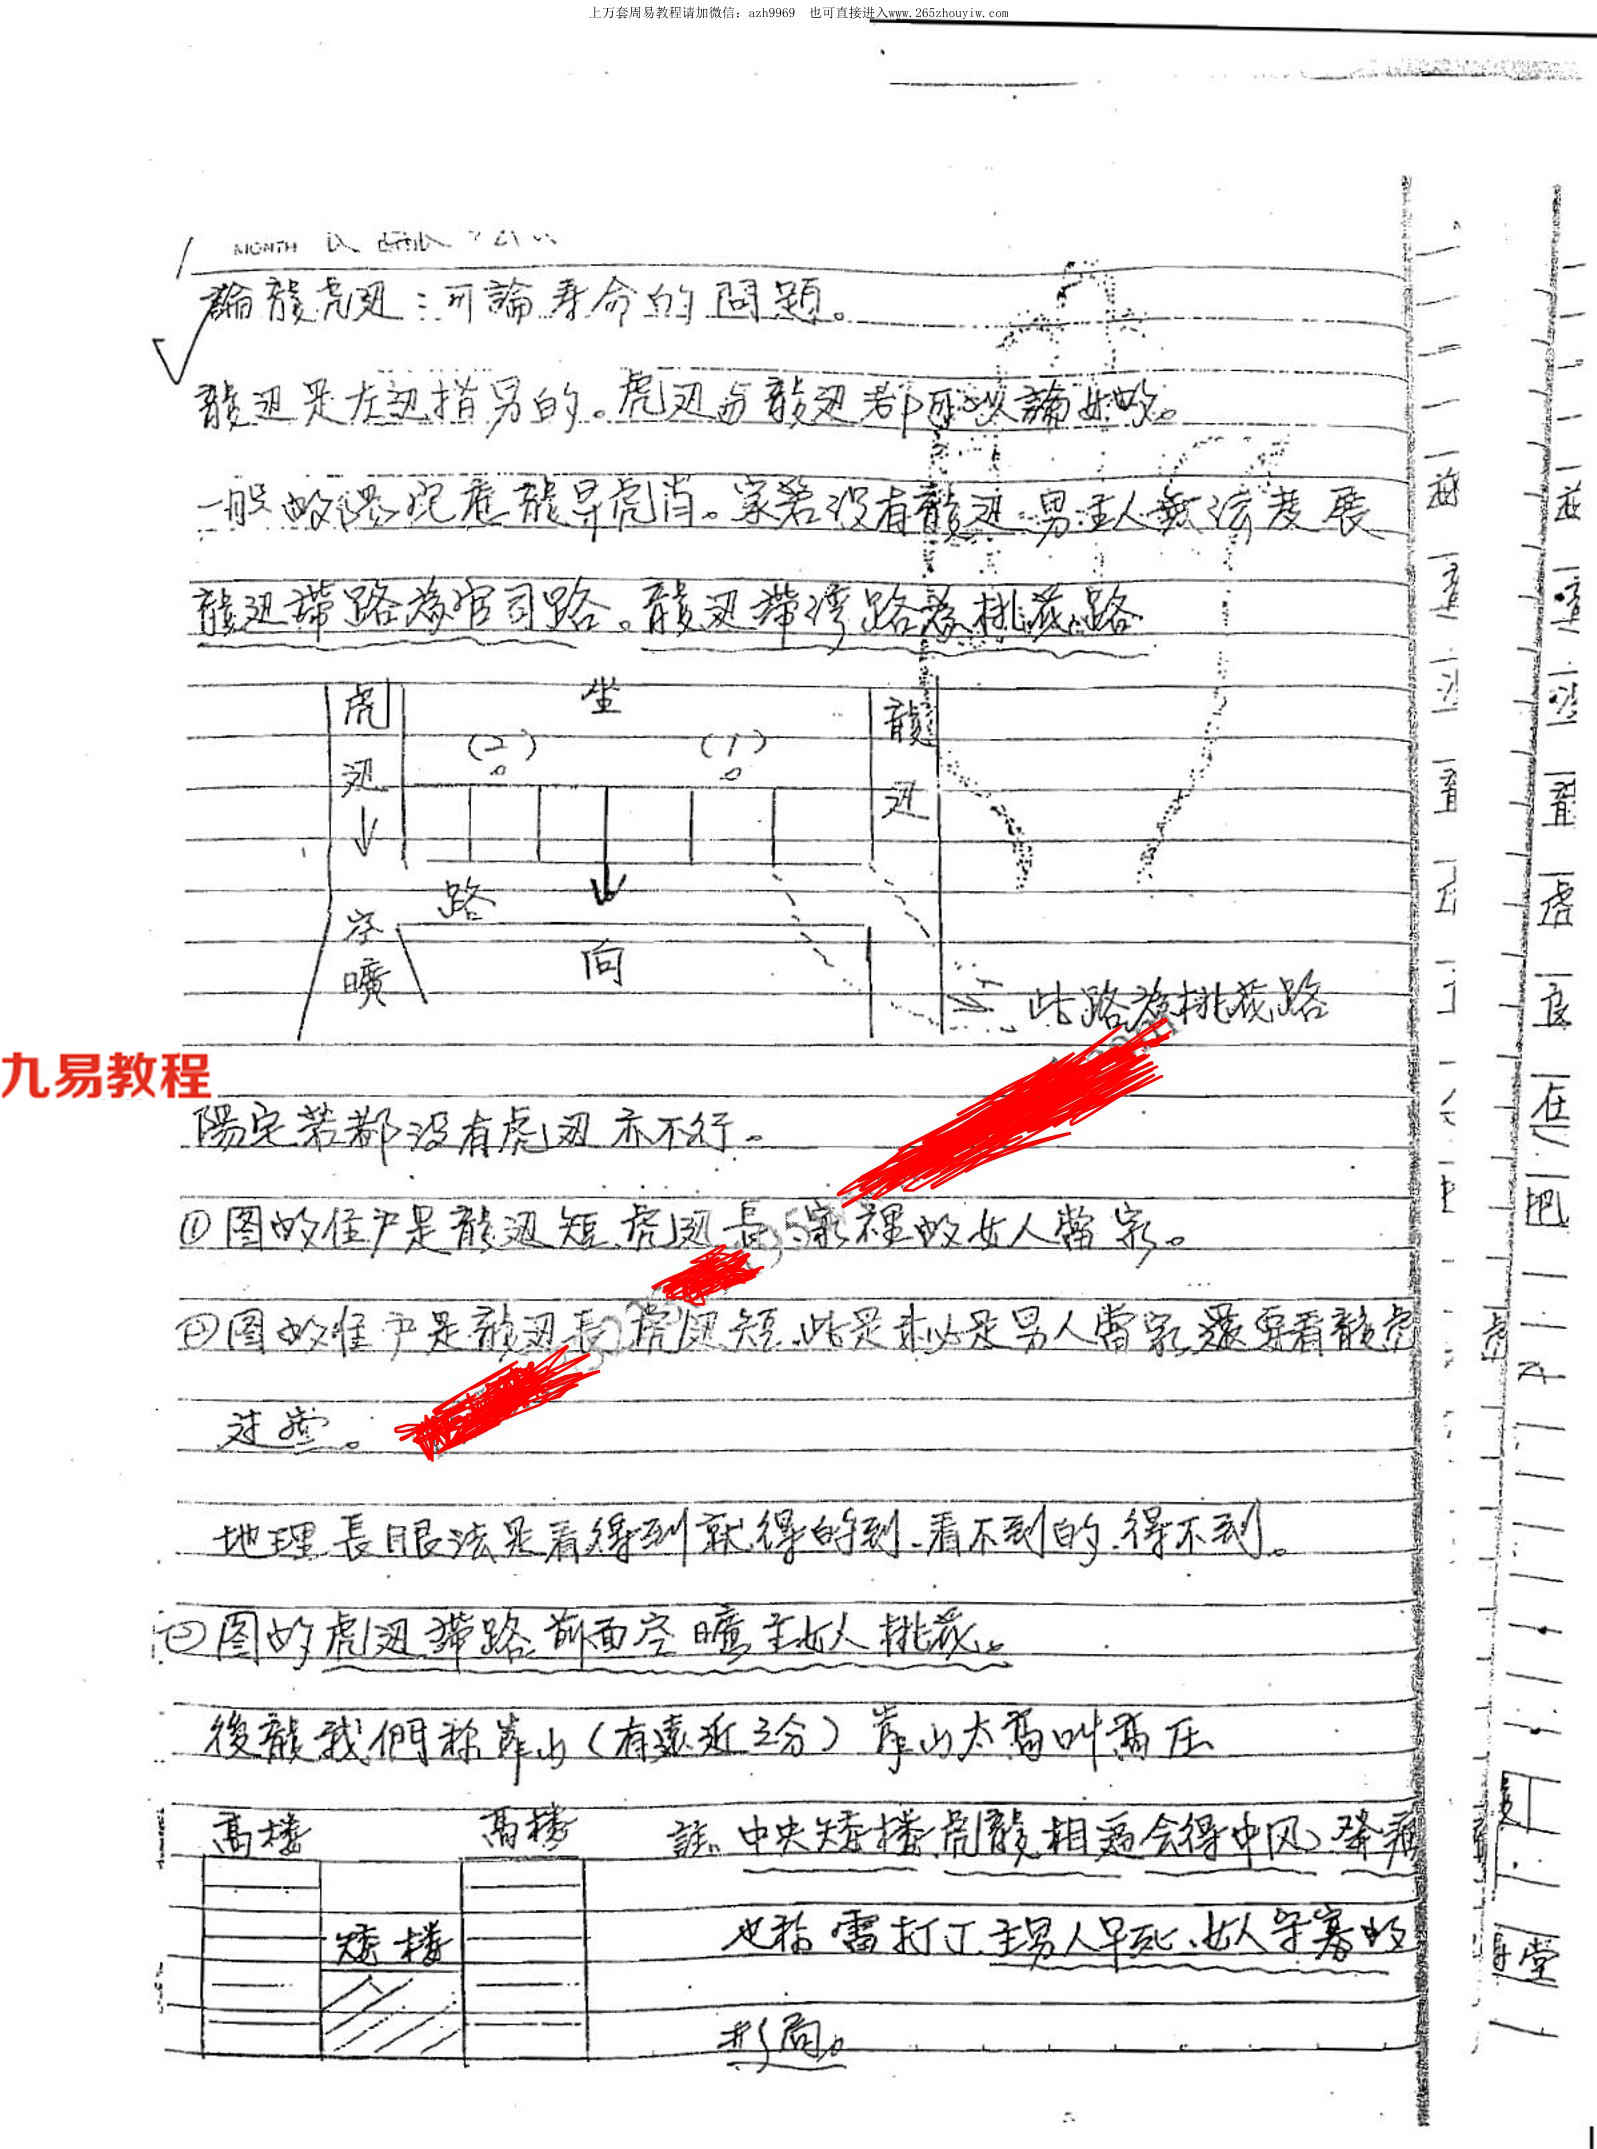 上万套周易教程请加微信：azh9969　也可直接进入www.265zhouyiw.com
MONTH
論龍虎边：可論寿命的問題。
龍边是左边指男的。虎边与龍边都可以論女的。
一般的陽宅在龍昇虎肖。家若没有龍边男主人無法发展
龍边带路為官司路。龍边带湾路為桃花路
虎边↓ 坐 龍边
(2) (1)
路
空曠 向
此路為桃花路
九易教程
陽宅若都没有虎边亦不行。
①图的住戶是龍边短、虎边長、家裡的女人當家。
②图的住戶是龍边長虎边短、此是未必是男人當家、還要看龍虎
过堂。
地理長眼法是看得到就得的到、看不到的、得不到。
②图的虎边带路前面空曠主女人桃花。
後龍我們称靠山（有遠近之分）靠山太高叫高压
高楼 高楼 註、中央矮楼虎龍相 会得中风、
矮楼 也称雷打丁、主男人早死、女人守寡的
形局。
虎
直
虎
在
把
堂